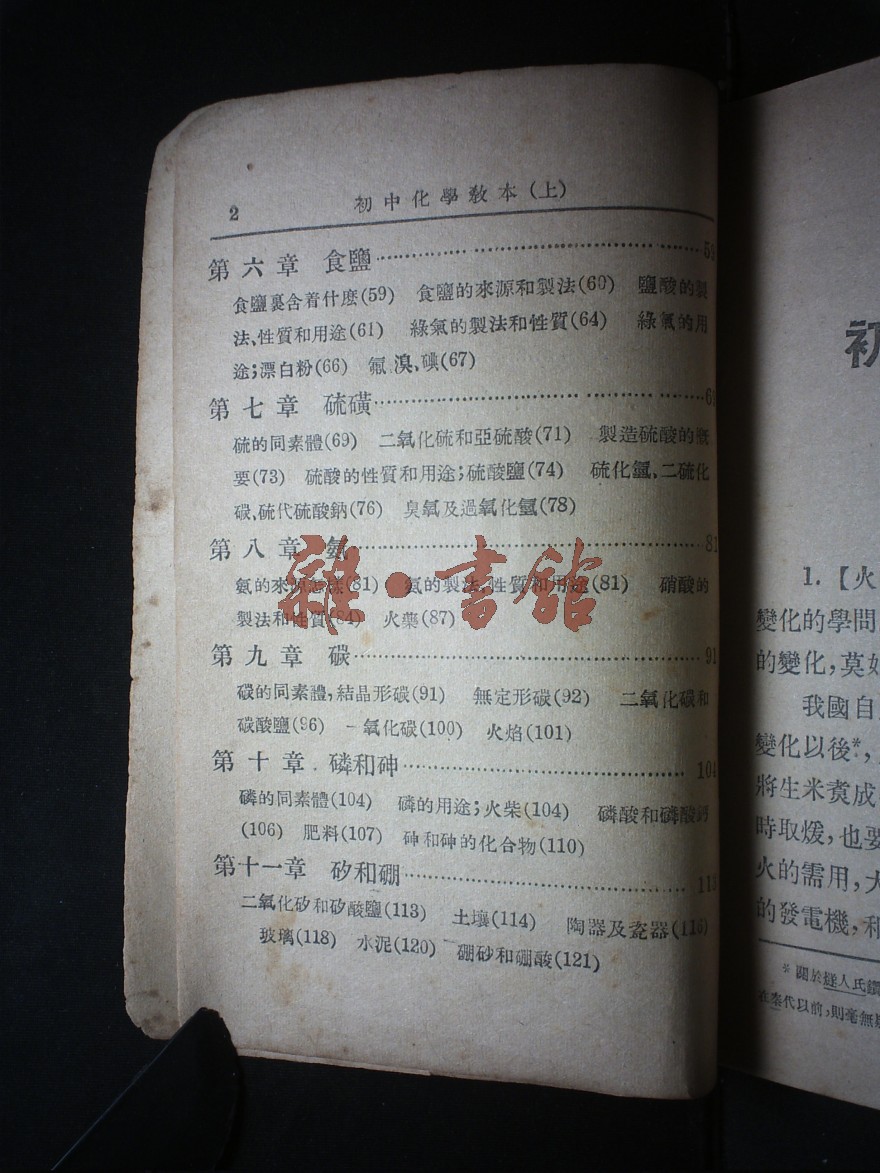 2 初中化學教本(上)
第六章 食鹽 59
食鹽裏含着什麽(59) 食鹽的來源和製法(60) 鹽酸的製
法、性質和用途(61) 綠氣的製法和性質(64) 綠氣的用
途;漂白粉(66) 氟、溴、碘(67)
第七章 硫磺 69
硫的同素體(69) 二氧化硫和亞硫酸(71) 製造硫酸的概
要(73) 硫酸的性質和用途;硫酸鹽(74) 硫化氫、二硫化
碳、硫代硫酸鈉(76) 臭氧及過氧化氫(78)
第八章 氨 81
氨的來源怎樣(81) 氨的製法、性質和用途(81) 硝酸的
製法和性質(84) 火藥(87)
第九章 碳 91
碳的同素體,結晶形碳(91) 無定形碳(92) 二氧化碳和
碳酸鹽(96) 一氧化碳(100) 火焰(101)
第十章 磷和砷 104
磷的同素體(104) 磷的用途;火柴(104) 磷酸和磷酸鈣
(106) 肥料(107) 砷和砷的化合物(110)
第十一章 矽和硼 113
二氧化矽和矽酸鹽(113) 土壤(114) 陶器及瓷器(116)
玻璃(118) 水泥(120) 硼砂和硼酸(121)
雜·書館
初
1.【火
變化的學問
的變化,莫如
我國自
變化以後*,
將生米煑成
時取煖,也要
火的需用,大
的發電機,和
*關於燧人氏鑽
在秦代以前,則毫無疑